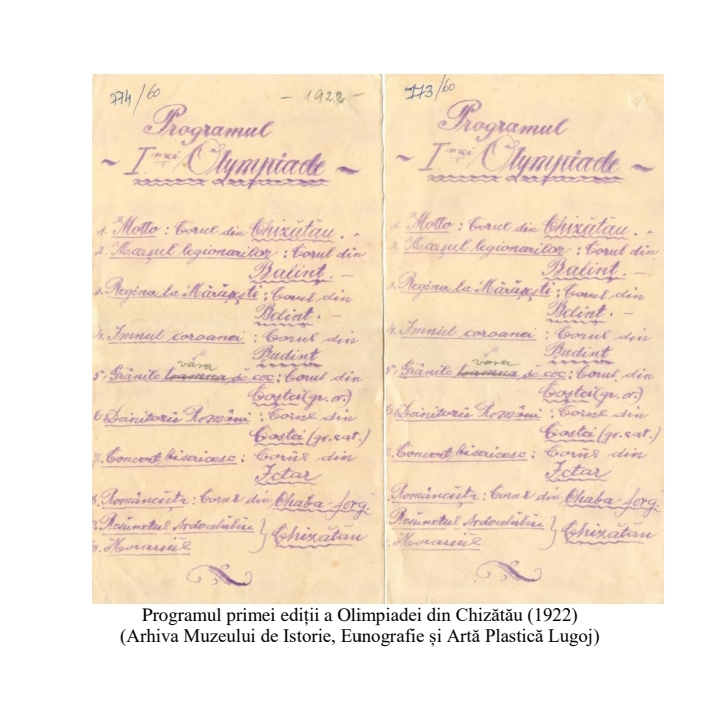 774/60
- 1922 -
Programul
~ I nei Olympiade ~
1. Motto : Corul din Chizătău. -
2. Marșul legionarilor : Corul din
Balinț. -
3. Regina la Mărășești : Corul din
Belinț. -
4. Imnul coroanei : Corul din
Budinț
vara
5. Grânite toamna se coc : Corul din
Coștei (gr. or.)
6. Români : Corul din
Coștei (gr. cat.)
7. Concert bisericesc : Corul din
Ictar
8. Româncuța : Corul din Ohaba-forg.
9. Răsunetul Ardealului
10. Morariul } Chizătău
773/60
Programul
~ I nei Olympiade ~
1. Motto : Corul din Chizătău. -
2. Marșul legionarilor : Corul din
Balinț. -
3. Regina la Mărășești : Corul din
Belinț. -
4. Imnul coroanei : Corul din
Budinț
vara
5. Grânite toamna se coc : Corul din
Coștei (gr. or.)
6. Români : Corul din
Coștei (gr. cat.)
7. Concert bisericesc : Corul din
Ictar
Româncuța : Corul din Ohaba-forg.
Răsunetul Ardealului
Morariul } Chizătău
Programul primei ediții a Olimpiadei din Chizătău (1922)
(Arhiva Muzeului de Istorie, Eunografie și Artă Plastică Lugoj)